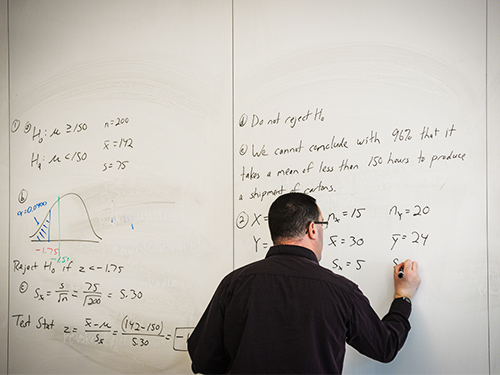 ① ⓐ H₀: μ ≥ 150 n = 200
H₁: μ < 150 x̄ = 142
s = 75
ⓑ
α = 0.0400
-1.75
-1.51
Reject H₀ if z < -1.75
ⓒ Sx̄ = s/√n = 75/√200 = 5.30
Test Stat z = x̄-μ/Sx̄ = (142-150)/5.30 =
ⓓ Do not reject H₀
ⓔ We cannot conclude with 96% that it
takes a mean of less than 150 hours to produce
a shipment of cartons.
② X = nₓ = 15 nᵧ = 20
Y = x̄ = 30 ȳ = 24
Sₓ = 5 S